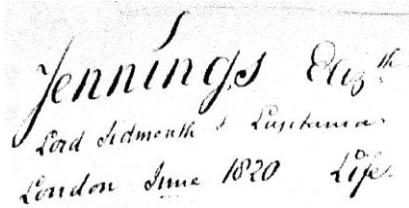 Jennings Elizth
Lord Sidmouth & Lusitania
London June 1820 Life